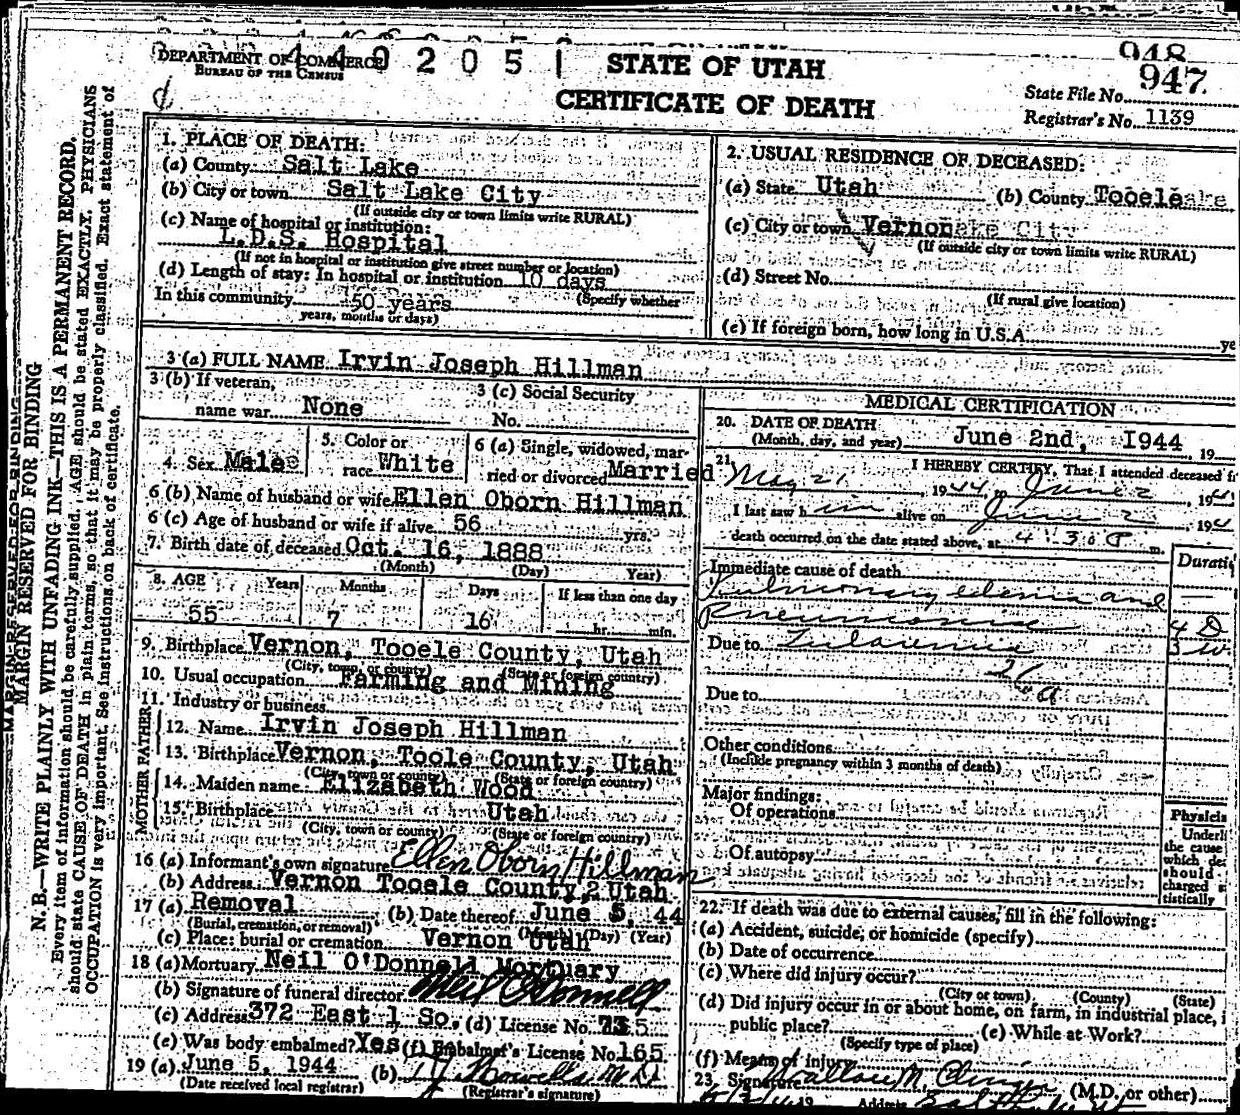 948
DEPARTMENT OF COMMERCE 4 4 0 2 0 5 1 STATE OF UTAH 947
BUREAU OF THE CENSUS
CERTIFICATE OF DEATH
State File No.
Registrar's No. 1139
1. PLACE OF DEATH:
(a) County Salt Lake
(b) City or town Salt Lake City
(If outside city or town limits write RURAL)
(c) Name of hospital or institution:
L.D.S. Hospital
(If not in hospital or institution give street number or location)
(d) Length of stay: In hospital or institution 10 days
(Specify whether
In this community 50 years
years, months or days)
2. USUAL RESIDENCE OF DECEASED:
(a) State Utah (b) County Tooele
(c) City or town Vernon
(If outside city or town limits write RURAL)
(d) Street No.
(If rural give location)
(e) If foreign born, how long in U.S.A. ye
3 (a) FULL NAME Irvin Joseph Hillman
3 (b) If veteran,
name war None
3 (c) Social Security
No.
4. Sex Male
5. Color or
race White
6 (a) Single, widowed, mar-
ried or divorced Married
6 (b) Name of husband or wife Ellen Oborn Hillman
6 (c) Age of husband or wife if alive 56 yrs.
7. Birth date of deceased Oct. 16, 1888
(Month) (Day) Year)
8. AGE Years Months Days If less than one day
55 7 16 hr. min.
9. Birthplace Vernon, Tooele County, Utah
(City, town, or county) (State or foreign country)
10. Usual occupation Farming and Mining
11. Industry or business
FATHER
12. Name Irvin Joseph Hillman
13. Birthplace Vernon, Toole County, Utah
(City, town or county) (State or foreign country)
MOTHER
14. Maiden name Elizabeth Wood
15. Birthplace Utah
(City, town or county) (State or foreign country)
16 (a) Informant's own signature Ellen Oborn Hillman
(b) Address Vernon Tooele County, Utah
17 (a) Removal (b) Date thereof June 5, 44
(Burial, cremation, or removal) (Month) (Day) (Year)
(c) Place: burial or cremation Vernon Utah
18 (a) Mortuary Neil O'Donnell Mortuary
(b) Signature of funeral director Neil O'Donnell
(c) Address 372 East 1 So. (d) License No.
(e) Was body embalmed? Yes (f) Embalmer's License No. 165
19 (a) June 5, 1944 (b)
(Date received local registrar) (Registrar's signature)
MEDICAL CERTIFICATION
20. DATE OF DEATH
(Month, day, and year) June 2nd, 1944, 19
21. I HEREBY CERTIFY, That I attended deceased fr
May 21, 1944, to June 2, 194
I last saw him alive on June 2, 194
death occurred on the date stated above, at 4:30 P m.
Durati
Immediate cause of death
Pulmonary edema and
Pneumonia 4 D
Due to Tularemia 3 w
Due to
Other conditions
(Include pregnancy within 3 months of death)
Major findings:
Of operations
Of autopsy
Physicia
Underl
the cause
which de
should
charged s
tistically
22. If death was due to external causes, fill in the following:
(a) Accident, suicide, or homicide (specify)
(b) Date of occurrence
(c) Where did injury occur?
(City or town) (County) (State)
(d) Did injury occur in or about home, on farm, in industrial place, i
public place? (e) While at Work?
(Specify type of place)
(f) Means of injury
23. Signature (M.D. or other)
Address
MARGIN RESERVED FOR BINDING
MARGIN RESERVED FOR BINDING
N. B.—WRITE PLAINLY WITH UNFADING INK—THIS IS A PERMANENT RECORD.
Every item of information should be carefully supplied. AGE should be stated EXACTLY. PHYSICIANS
should state CAUSE OF DEATH in plain terms, so that it may be properly classified. Exact statement of
OCCUPATION is very important. See instructions on back of certificate.